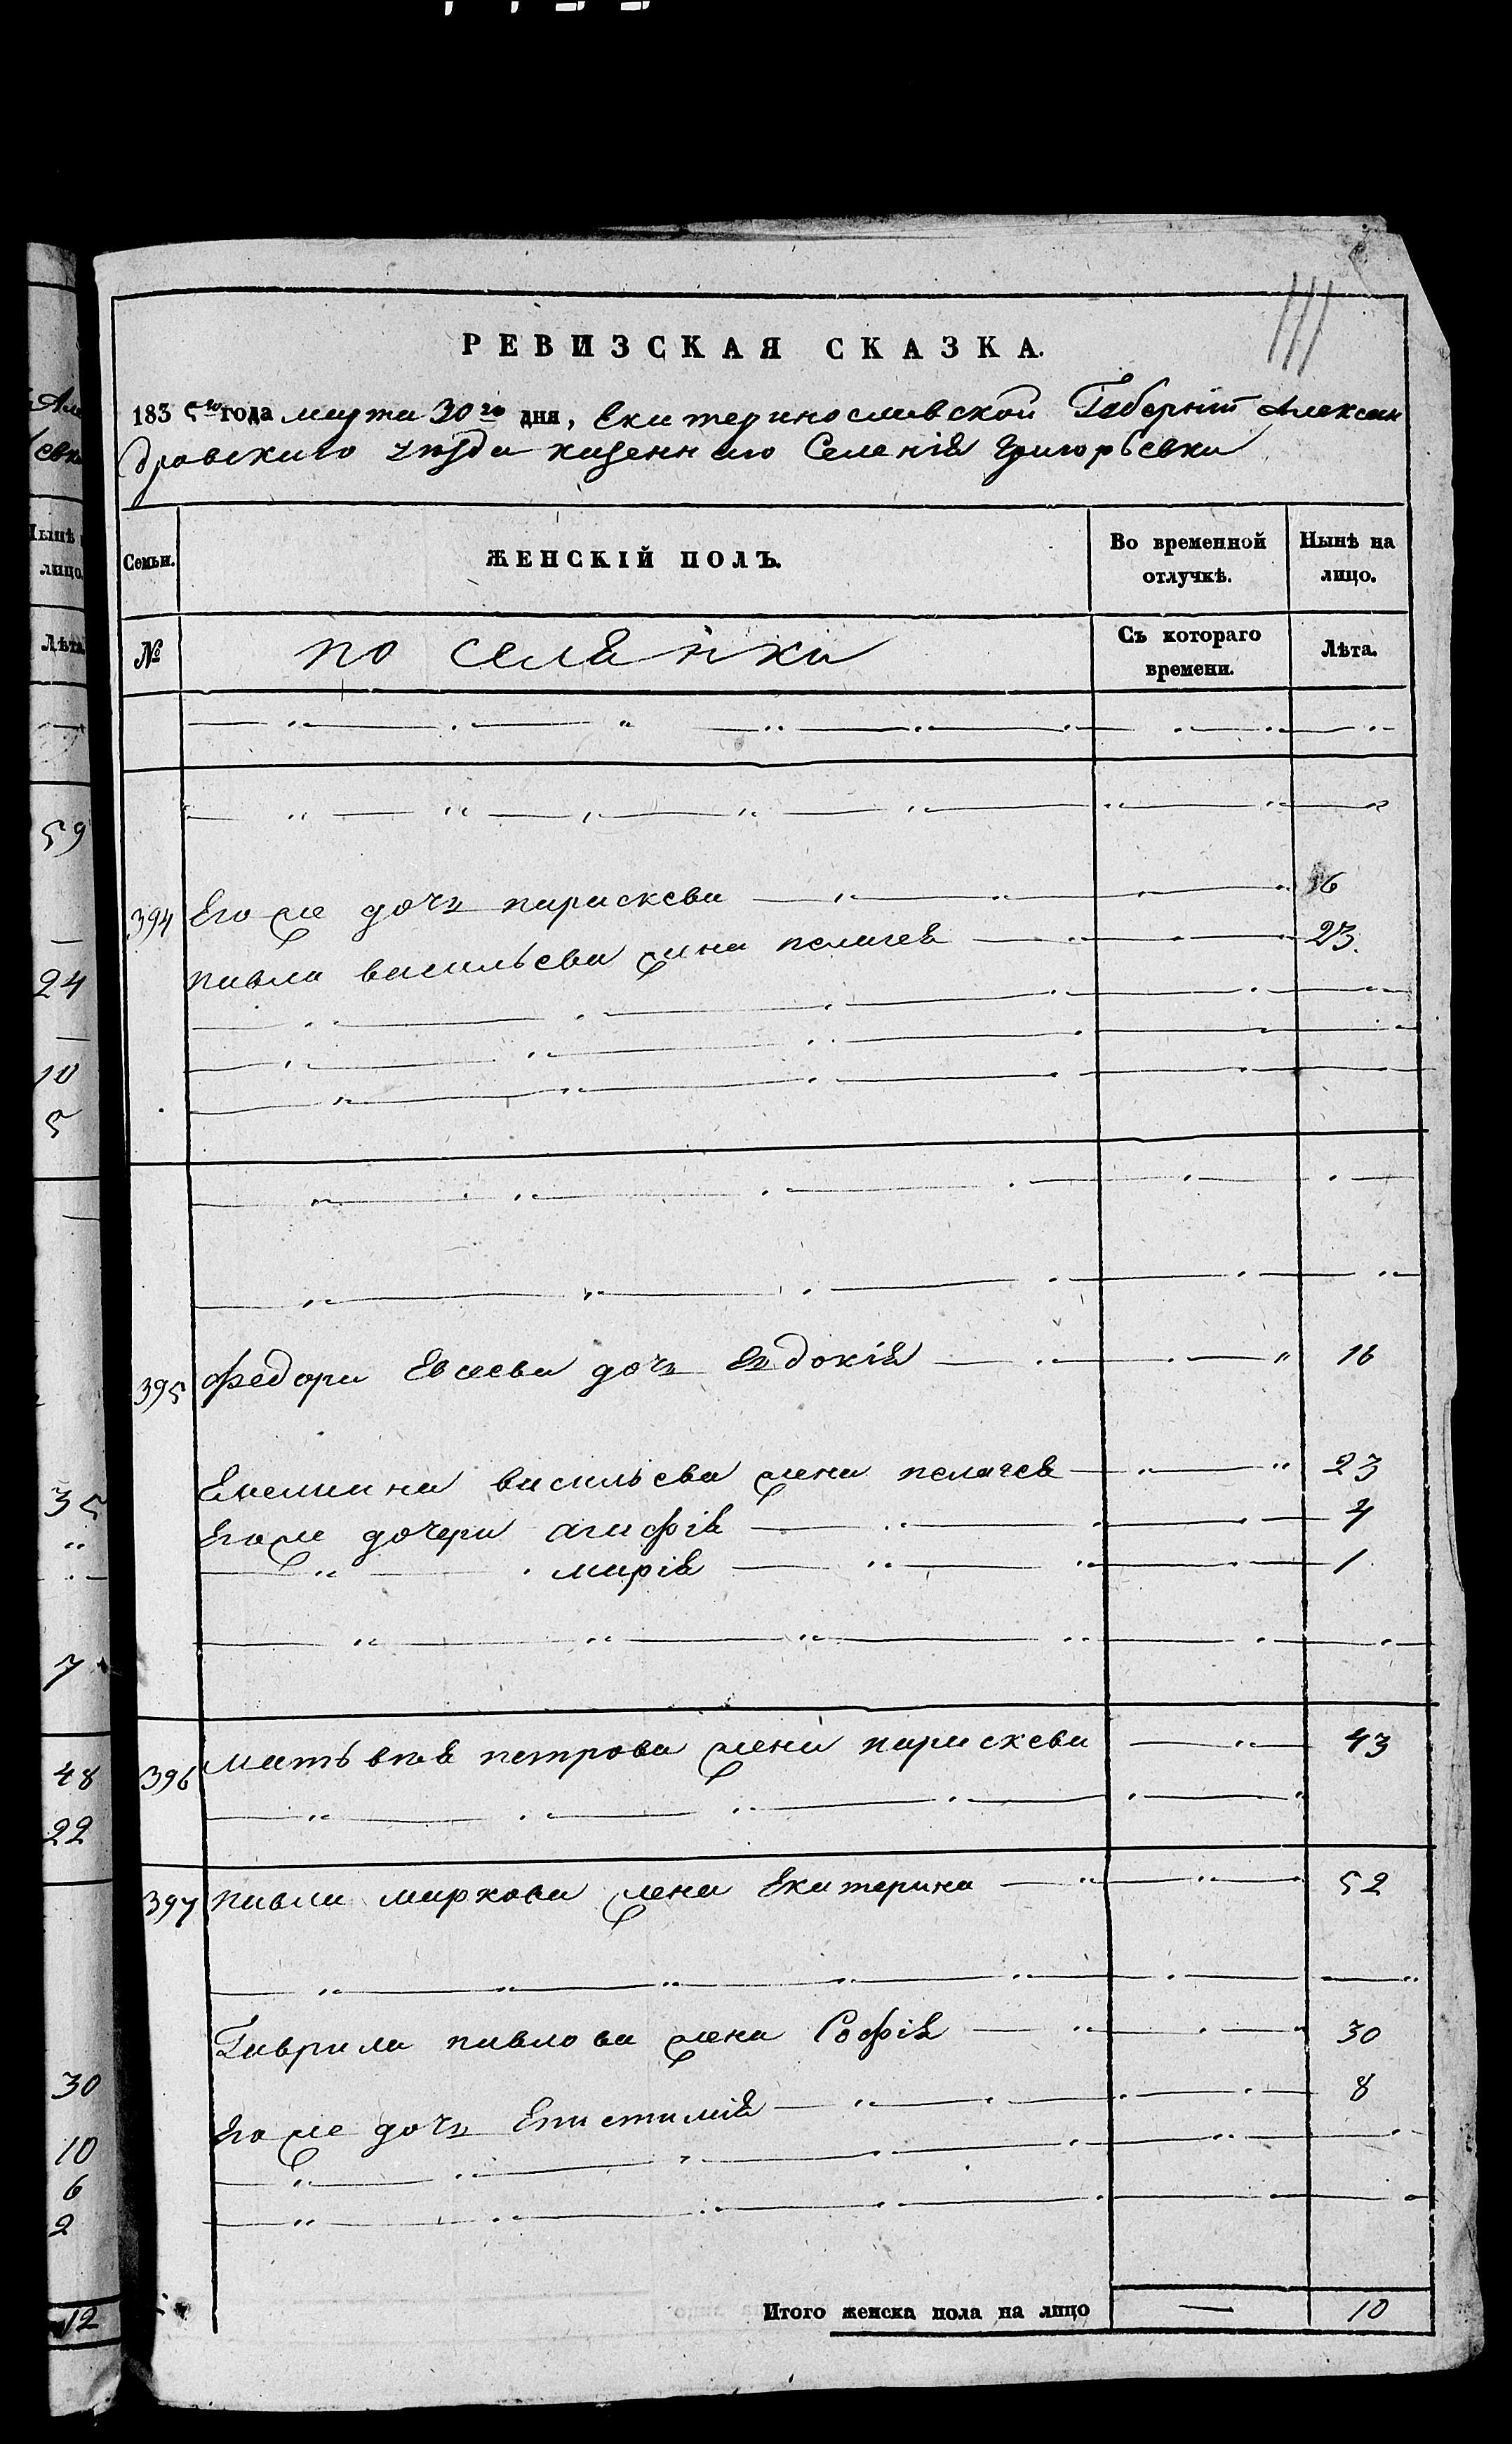 РЕВИЗСКАЯ СКАЗКА.
1835го года марта 30го дня, Екатеринославской Губерніи Алексан
дровскаго уѣзда казеннаго Селенія Григорьевки
Семьи.
ЖЕНСКІЙ ПОЛЪ.
Во временной отлучкѣ.
Нынѣ на лицо.
№
поселянки
Съ котораго времени.
Лѣта.
394 Его же дочь параскева 16
павла васильева жена пелагея 23.
395 Федора Евсеева дочь Евдокія 16
васильева жена пелагея 23
Егоже дочери агафія 4
марія 1
396 Матьвѣя петрова жена параскева 43
397 павла маркова жена Екатерина 52
Гаврила павлова жена Софія 30
Его же дочь Епистимія 8
Итого женска пола на лицо — 10
Нынѣ
лицо.
Лѣта
59
24
10
5
35
7
48
22
30
10
6
2
12